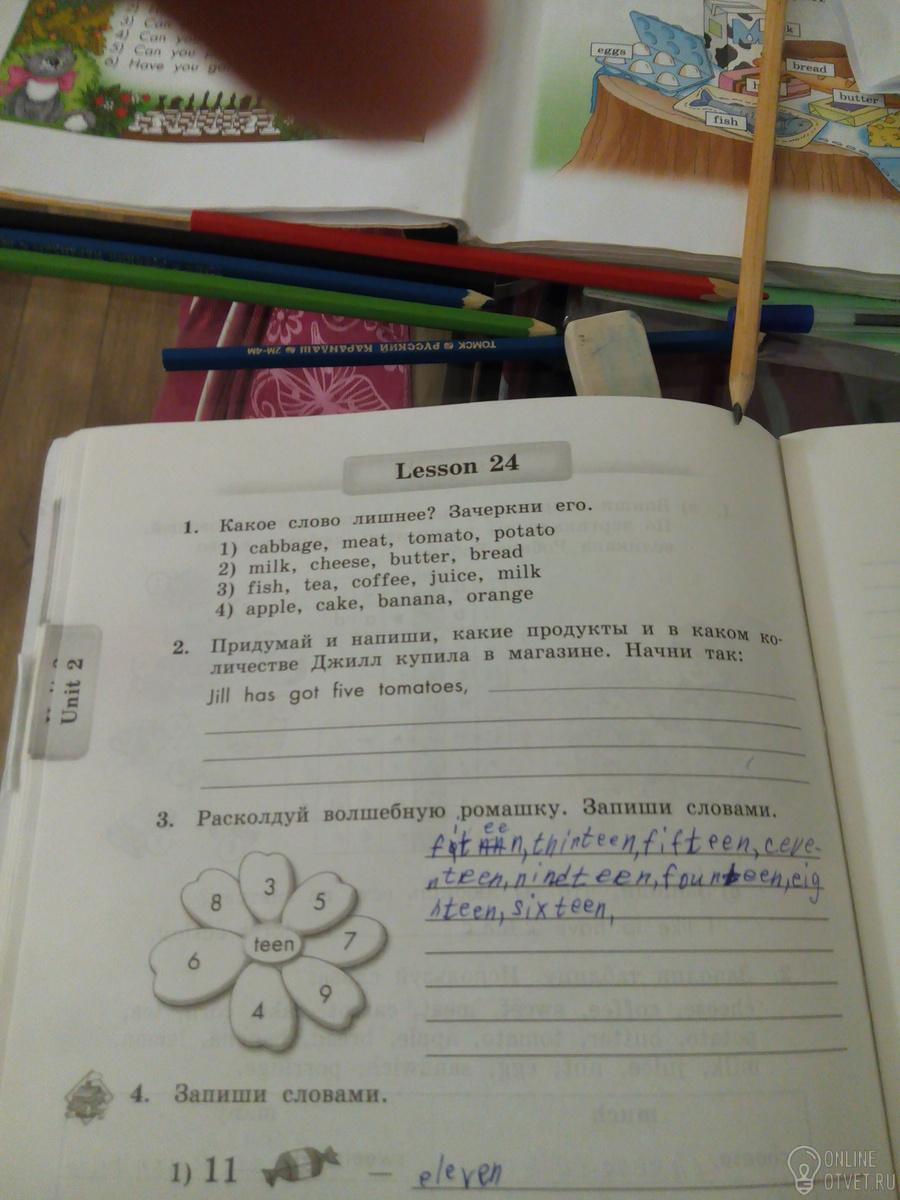 3) Can
4) Can yo
5) Can you
6) Have you go
eggs
M
k
bread
butter
fish
ТОМСК РУССКИЙ КАРАНДАШ 2М-4М
Lesson 24
1. Какое слово лишнее? Зачеркни его.
1) cabbage, meat, tomato, potato
2) milk, cheese, butter, bread
3) fish, tea, coffee, juice, milk
4) apple, cake, banana, orange
2. Придумай и напиши, какие продукты и в каком ко-
личестве Джилл купила в магазине. Начни так:
Jill has got five tomatoes,
Unit 2
3. Расколдуй волшебную ромашку. Запиши словами.
thinteen, fifteen, ceve-
nteen, nindteen, fourteen, eig
hteen, sixteen,
3
8
5
teen
7
6
9
4
4. Запиши словами.
1) 11 – eleven
ONLINE
OTVET.RU